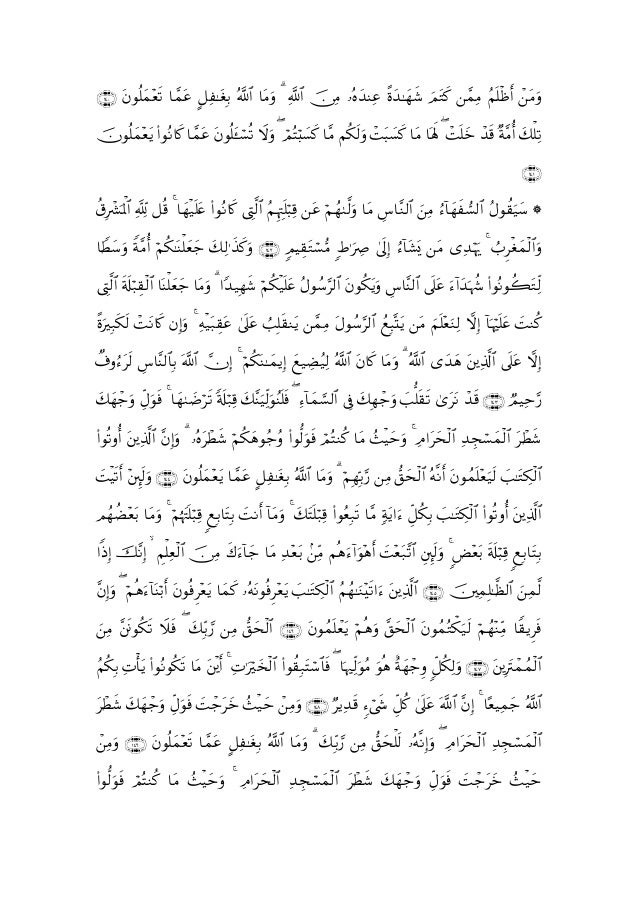 وَمَنْ أَظْلَمُ مِمَّن كَتَمَ شَهَـٰدَةً عِندَهُۥ مِنَ ٱللَّهِ ۗ وَمَا ٱللَّهُ بِغَـٰفِلٍ عَمَّا تَعْمَلُونَ ﴿١٤٠﴾
تِلْكَ أُمَّةٌ قَدْ خَلَتْ ۖ لَهَا مَا كَسَبَتْ وَلَكُم مَّا كَسَبْتُمْ ۖ وَلَا تُسْـَٔلُونَ عَمَّا كَانُوا۟ يَعْمَلُونَ
﴿١٤١﴾
۞ سَيَقُولُ ٱلسُّفَهَآءُ مِنَ ٱلنَّاسِ مَا وَلَّىٰهُمْ عَن قِبْلَتِهِمُ ٱلَّتِى كَانُوا۟ عَلَيْهَا ۚ قُل لِّلَّهِ ٱلْمَشْرِقُ
وَٱلْمَغْرِبُ ۚ يَهْدِى مَن يَشَآءُ إِلَىٰ صِرَٰطٍ مُّسْتَقِيمٍ ﴿١٤٢﴾ وَكَذَٰلِكَ جَعَلْنَـٰكُمْ أُمَّةً وَسَطًا
لِّتَكُونُوا۟ شُهَدَآءَ عَلَى ٱلنَّاسِ وَيَكُونَ ٱلرَّسُولُ عَلَيْكُمْ شَهِيدًا ۗ وَمَا جَعَلْنَا ٱلْقِبْلَةَ ٱلَّتِى
كُنتَ عَلَيْهَآ إِلَّا لِنَعْلَمَ مَن يَتَّبِعُ ٱلرَّسُولَ مِمَّن يَنقَلِبُ عَلَىٰ عَقِبَيْهِ ۚ وَإِن كَانَتْ لَكَبِيرَةً
إِلَّا عَلَى ٱلَّذِينَ هَدَى ٱللَّهُ ۗ وَمَا كَانَ ٱللَّهُ لِيُضِيعَ إِيمَـٰنَكُمْ ۚ إِنَّ ٱللَّهَ بِٱلنَّاسِ لَرَءُوفٌ
رَّحِيمٌ ﴿١٤٣﴾ قَدْ نَرَىٰ تَقَلُّبَ وَجْهِكَ فِى ٱلسَّمَآءِ ۖ فَلَنُوَلِّيَنَّكَ قِبْلَةً تَرْضَىٰهَا ۚ فَوَلِّ وَجْهَكَ
شَطْرَ ٱلْمَسْجِدِ ٱلْحَرَامِ ۚ وَحَيْثُ مَا كُنتُمْ فَوَلُّوا۟ وُجُوهَكُمْ شَطْرَهُۥ ۗ وَإِنَّ ٱلَّذِينَ أُوتُوا۟
ٱلْكِتَـٰبَ لَيَعْلَمُونَ أَنَّهُ ٱلْحَقُّ مِن رَّبِّهِمْ ۗ وَمَا ٱللَّهُ بِغَـٰفِلٍ عَمَّا يَعْمَلُونَ ﴿١٤٤﴾ وَلَئِنْ أَتَيْتَ
ٱلَّذِينَ أُوتُوا۟ ٱلْكِتَـٰبَ بِكُلِّ ءَايَةٍ مَّا تَبِعُوا۟ قِبْلَتَكَ ۚ وَمَآ أَنتَ بِتَابِعٍ قِبْلَتَهُمْ ۚ وَمَا بَعْضُهُم
بِتَابِعٍ قِبْلَةَ بَعْضٍ ۚ وَلَئِنِ ٱتَّبَعْتَ أَهْوَآءَهُم مِّنۢ بَعْدِ مَا جَآءَكَ مِنَ ٱلْعِلْمِ ۙ إِنَّكَ إِذًا
لَّمِنَ ٱلظَّـٰلِمِينَ ﴿١٤٥﴾ ٱلَّذِينَ ءَاتَيْنَـٰهُمُ ٱلْكِتَـٰبَ يَعْرِفُونَهُۥ كَمَا يَعْرِفُونَ أَبْنَآءَهُمْ ۖ وَإِنَّ
فَرِيقًا مِّنْهُمْ لَيَكْتُمُونَ ٱلْحَقَّ وَهُمْ يَعْلَمُونَ ﴿١٤٦﴾ ٱلْحَقُّ مِن رَّبِّكَ ۖ فَلَا تَكُونَنَّ مِنَ
ٱلْمُمْتَرِينَ ﴿١٤٧﴾ وَلِكُلٍّ وِجْهَةٌ هُوَ مُوَلِّيهَا ۖ فَٱسْتَبِقُوا۟ ٱلْخَيْرَٰتِ ۚ أَيْنَ مَا تَكُونُوا۟ يَأْتِ بِكُمُ
ٱللَّهُ جَمِيعًا ۚ إِنَّ ٱللَّهَ عَلَىٰ كُلِّ شَىْءٍ قَدِيرٌ ﴿١٤٨﴾ وَمِنْ حَيْثُ خَرَجْتَ فَوَلِّ وَجْهَكَ شَطْرَ
ٱلْمَسْجِدِ ٱلْحَرَامِ ۖ وَإِنَّهُۥ لَلْحَقُّ مِن رَّبِّكَ ۗ وَمَا ٱللَّهُ بِغَـٰفِلٍ عَمَّا تَعْمَلُونَ ﴿١٤٩﴾ وَمِنْ
حَيْثُ خَرَجْتَ فَوَلِّ وَجْهَكَ شَطْرَ ٱلْمَسْجِدِ ٱلْحَرَامِ ۚ وَحَيْثُ مَا كُنتُمْ فَوَلُّوا۟